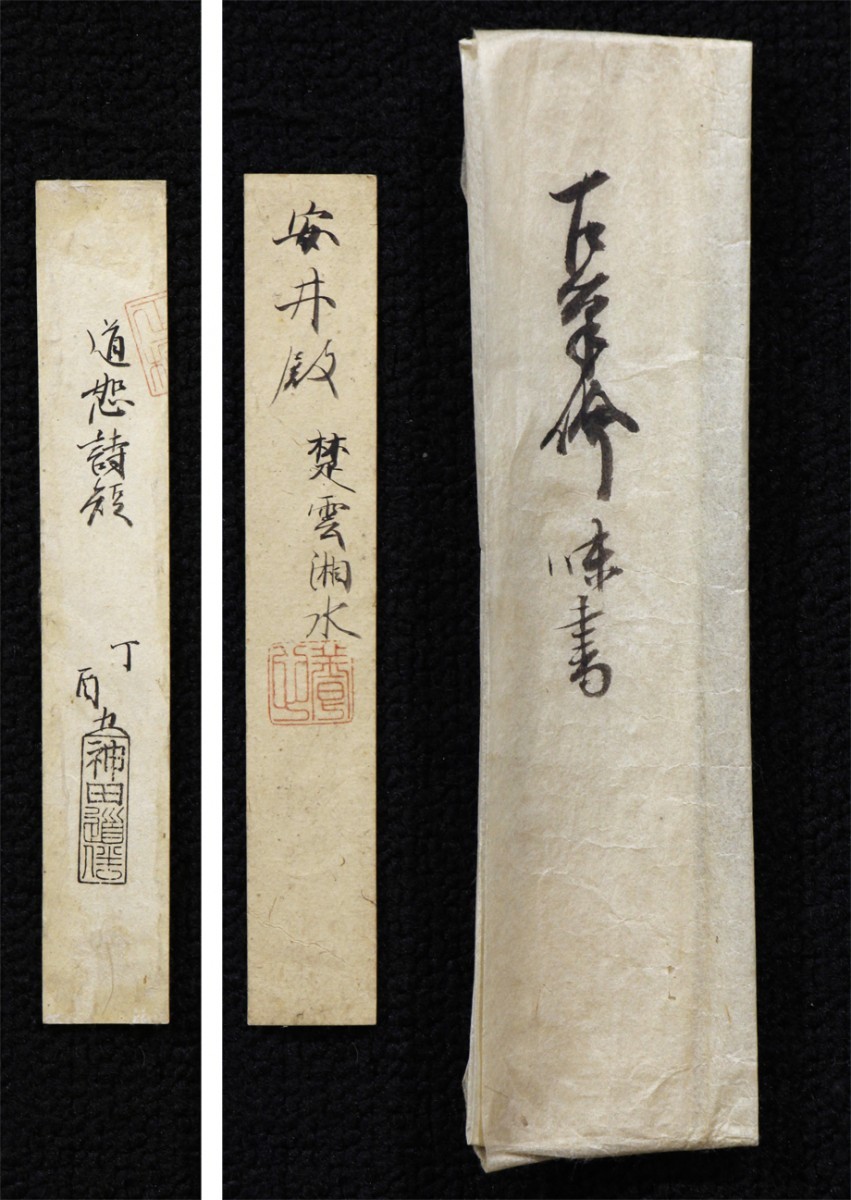 古筆
味書
安井殿
楚雲湘水
道恕詩短
丁
酉九
神田道伴